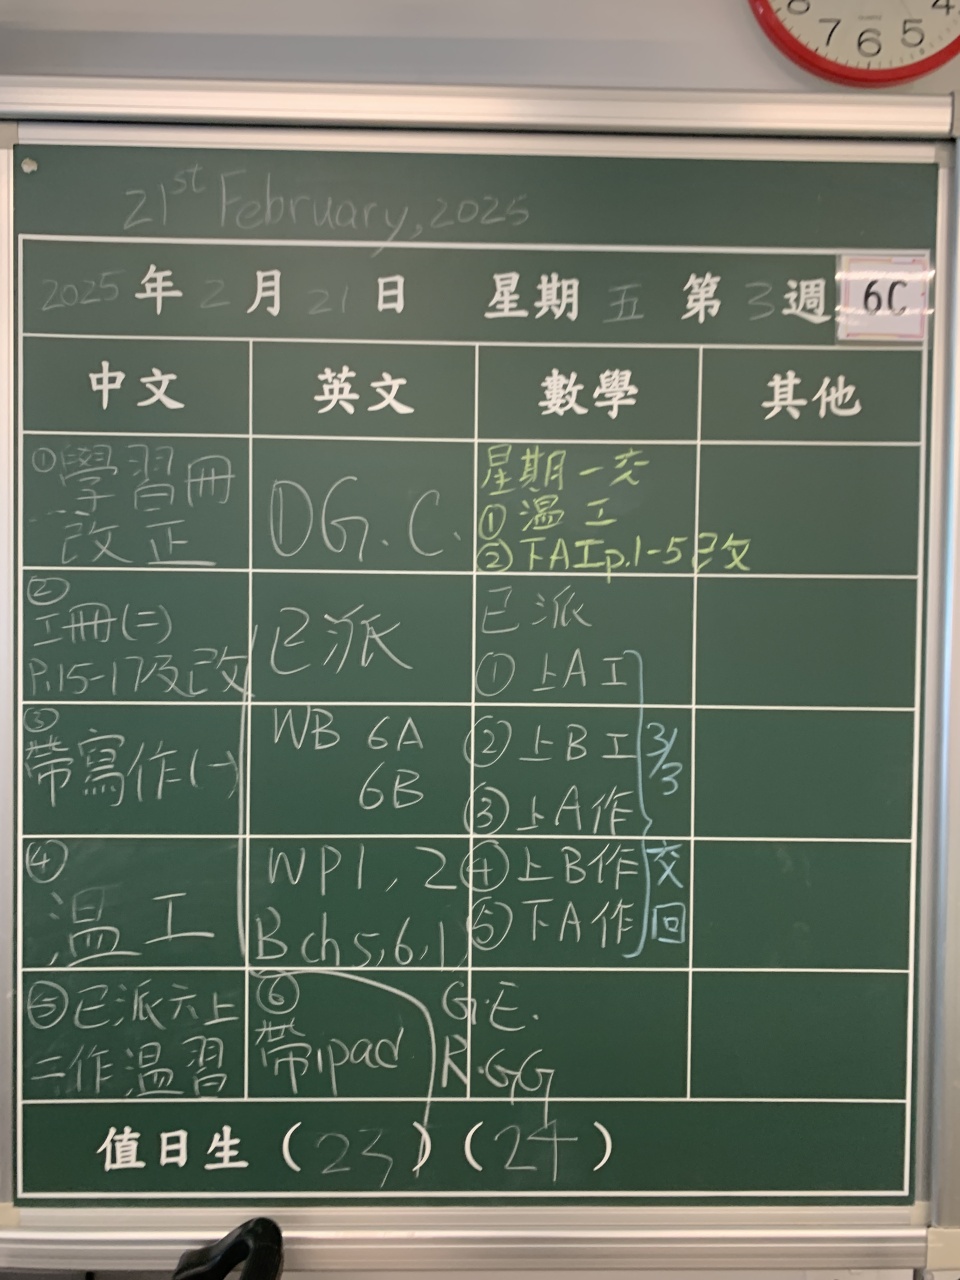 7 6 5
21st February, 2025
2025 年 2 月 21 日 星期 五 第 3 週 6C
中文 英文 數學 其他
①學習冊
改正
②
工冊(二)
P.15-17及改
③
帶寫作(一)
④
溫工
⑤已派六上
二作溫習
⑥
帶ipad
①G.C.
已派
WB 6A
6B
WP1, 2
B ch5,6,1
G.E.
R.GG
星期一交
①溫工
②下A工p.1-5已改
已派
①上A工
②上B工
③上A作
④上B作
⑤下A作
3/3
交
回
值日生 (23) (24)